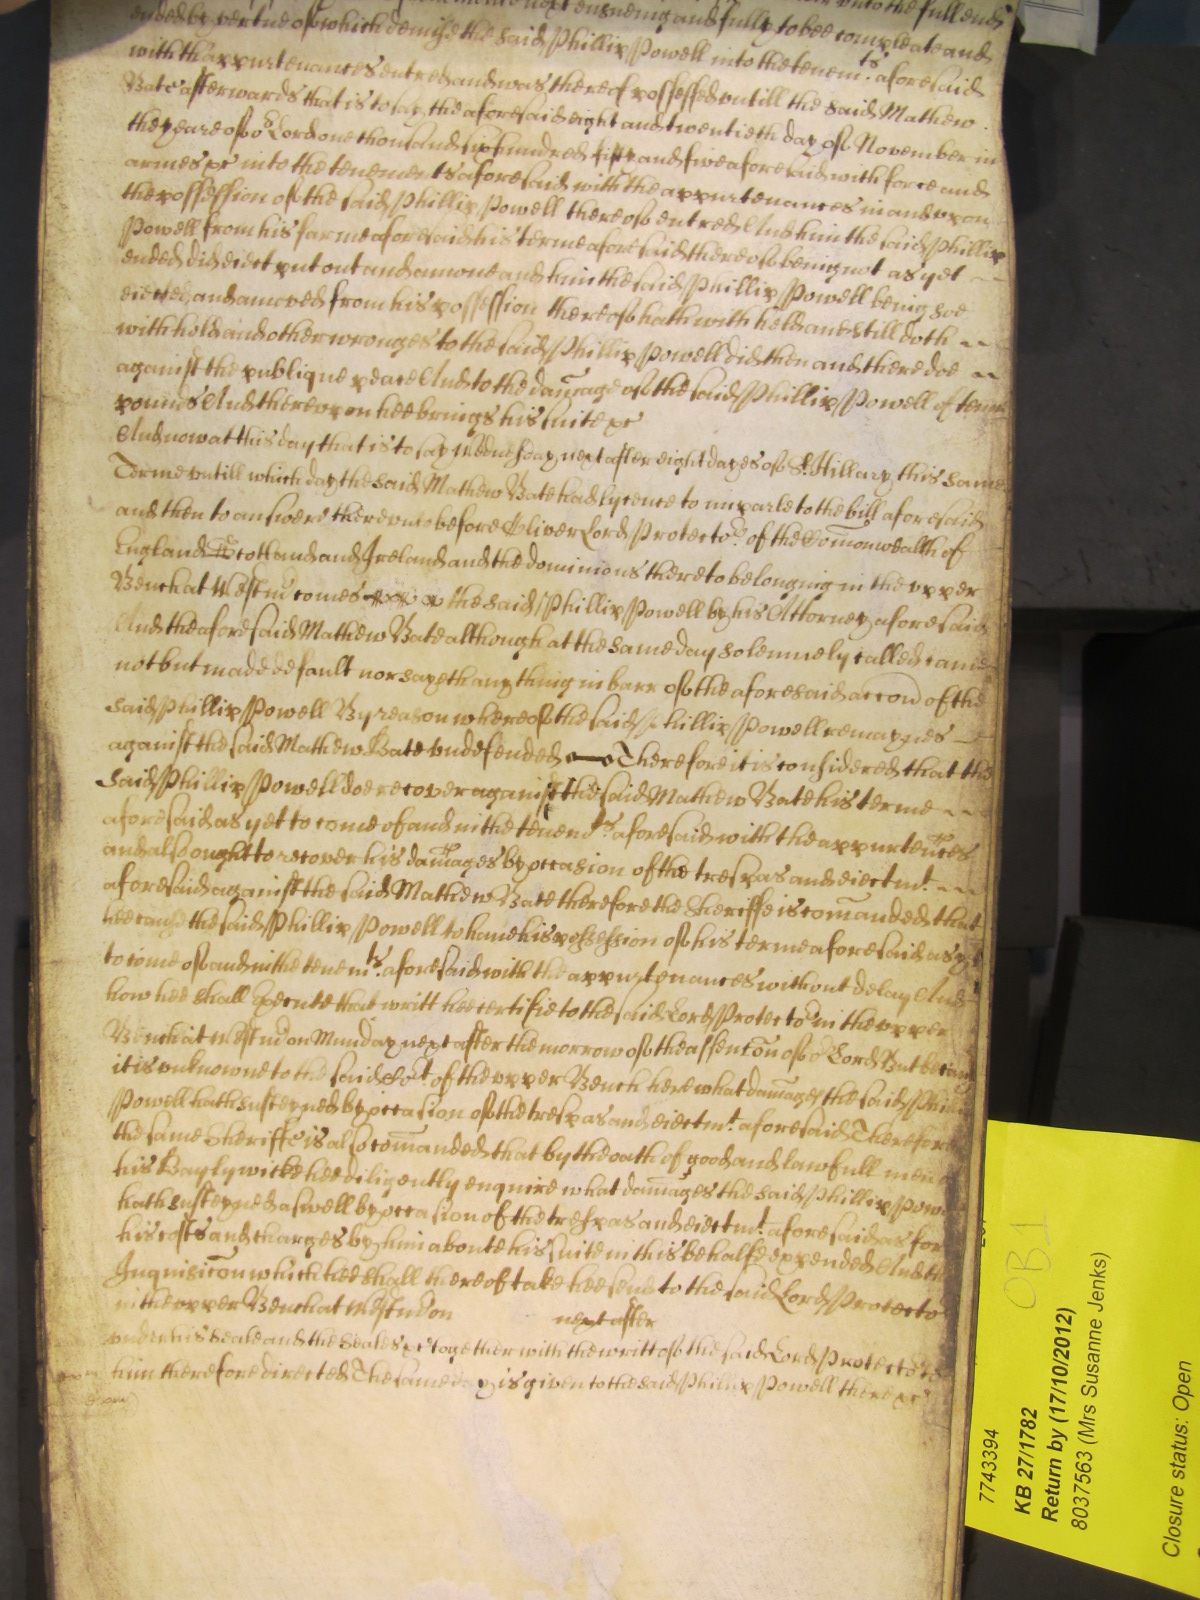 next ensueing and fully to bee compleate and
ended by vertue of which demise the said Phillip Powell into the tenemts aforesaid
with thappurtenances entred and was thereof possessed untill the said Mathew
Bate afterwards that is to say the aforesaid eight and twentieth day of November in
the yeare of or Lord one thousand six hundred fifty and five aforesaid with force and
armes &c into the tenements aforesaid with the appurtenances in and upon
the possession of the said Phillip Powell thereof entred And him the said Phillip
Powell from his farme aforesaid his terme aforesaid thereof being not as yet
ended did eiect put out and amove and him the said Phillip Powell being soe
eiected and amoved from his possession thereof hath with held and still doth
with hold and other wronges to the said Phillip Powell did then and there doe
against the publique peace And to the damage of the said Phillip Powell of tenn
pounds And thereupon hee brings his suite &c
And now at this day that is to say Wednesday next after eight dayes of St. Hillary this same
Terme untill which day the said Mathew Bate had lycence to imparle to the bill aforesaid
and then to answere thereunto before Oliver Lord Protector of the Comonwealth of
England Scotland and Ireland and the dominions thereto belonging in the upper
Bench at Westmr comes the said Phillip Powell by his Attorney aforesaid
And the aforesaid Mathew Bate although at the same day solemnely called came
not but made default nor sayeth any thing in barr of the aforesaid accon of the
said Phillip Powell By reason whereof the said Phillip Powell remaynes
against the said Mathew Bate undefended Therefore it is considered that the
said Phillip Powell doe recover against the said Mathew Bate his terme
aforesaid as yet to come of and in the tenemts aforesaid with the appurtences
and also ought to recover his damages by occasion of the trespas and eiectmt.
aforesaid against the said Mathew Bate therefore the Sheriffe is comanded that
hee cause the said Phillip Powell to have his possession of his terme aforesaid as yet
to come of and in the tenemts. aforesaid with the appurtenances without delay And
how hee shall execute that writt hee certifie to the said Lord Protector in the upper
Bench at Westmr on Munday next after the morrow of the assencon of or Lord But because
it is unknowne to the said Cort of the upper Bench here what damages the said Phillip
Powell hath susteyned by occasion of the trespas and eiectmt. aforesaid Therefore
the same Sheriffe is also comanded that by the oath of good and lawfull men of
his Baylywicke hee diligently enquire what damages the said Phillip Powell
hath susteyned aswell by occasion of the trespas and eiectmt. aforesaid as for
his costs and charges by him aboute his suite in this behalfe expended And the
Inquisicon which hee shall thereof take hee send to the said Lord Protector
in the upper Bench at Westmr on next after
under his seale and the seales &c together with the writt of the said Lord Protector to
him therefore directed The same day is given to the said Phillip Powell there &c
OB1
7743394
KB 27/1782
Return by (17/10/2012)
8037563 (Mrs Susanne Jenks)
Closure status: Open